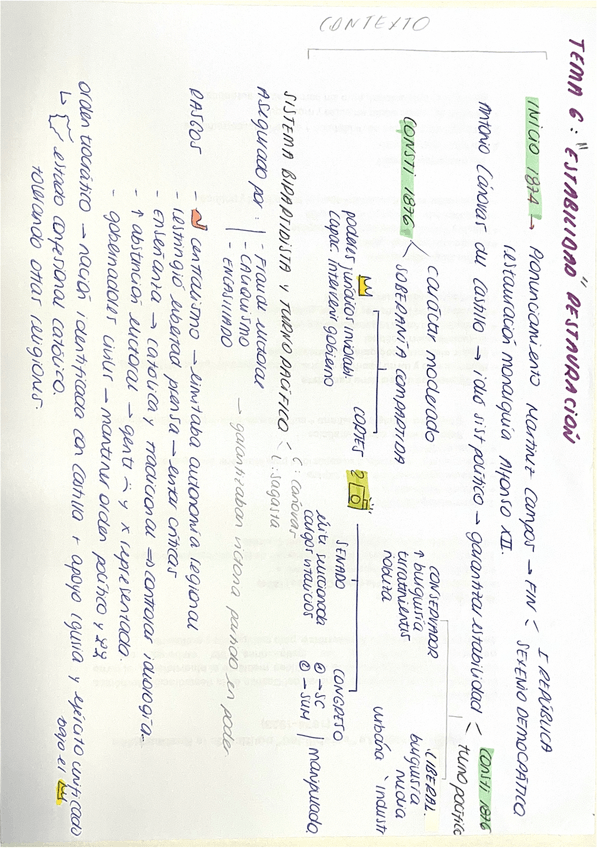 CONTEXTO
TEMA 6: "ESTABILIDAD" RESTAURACIÓN
INICIO 1874 → Pronunciamiento Martínez Campos → FIN < I REPÚBLICA
SEXENIO DEMOCRÁTICO
restauración monarquía Alfonso XII.
Antonio Cánovas del Castillo → ideó sist político → garantizar estabilidad < CONSTI 1876
turno pacífic
CONSTI 1876 < carácter moderado
SOBERANÍA COMPARTIDA
CONSERVADOR
↑ burguesía
terratenientes
nobleza
LIBERAL
burguesía
media
urbana industr
CORTES 2
poderes jurídicos
capac. intervenir gobierno
SENADO
cargos vitalicios
CONGRESO
① → SC
② → SUM
manipulado
SISTEMA BIPARTIDISTA Y TURNO PACÍFICO < C: Cánovas
L: Sagasta
Asegurado por: - Fraude electoral
- CACIQUISMO
- ENCASILLADO
→ garantizaban victoria partido en poder
RASGOS - centralismo → limitaba autonomía regional
- restringió libertad prensa → evitar críticas
- Enseñanza → católica y tradicional → controlar ideología
- ↑ abstención electoral → gente ÷ y x representada
- gobernadores civiles → mantener orden político y
Orden → nación identificada con castilla + apoyo iglesia y ejército unificado
bajo el
↳ estado confesional católico.
tolerando otras religions.